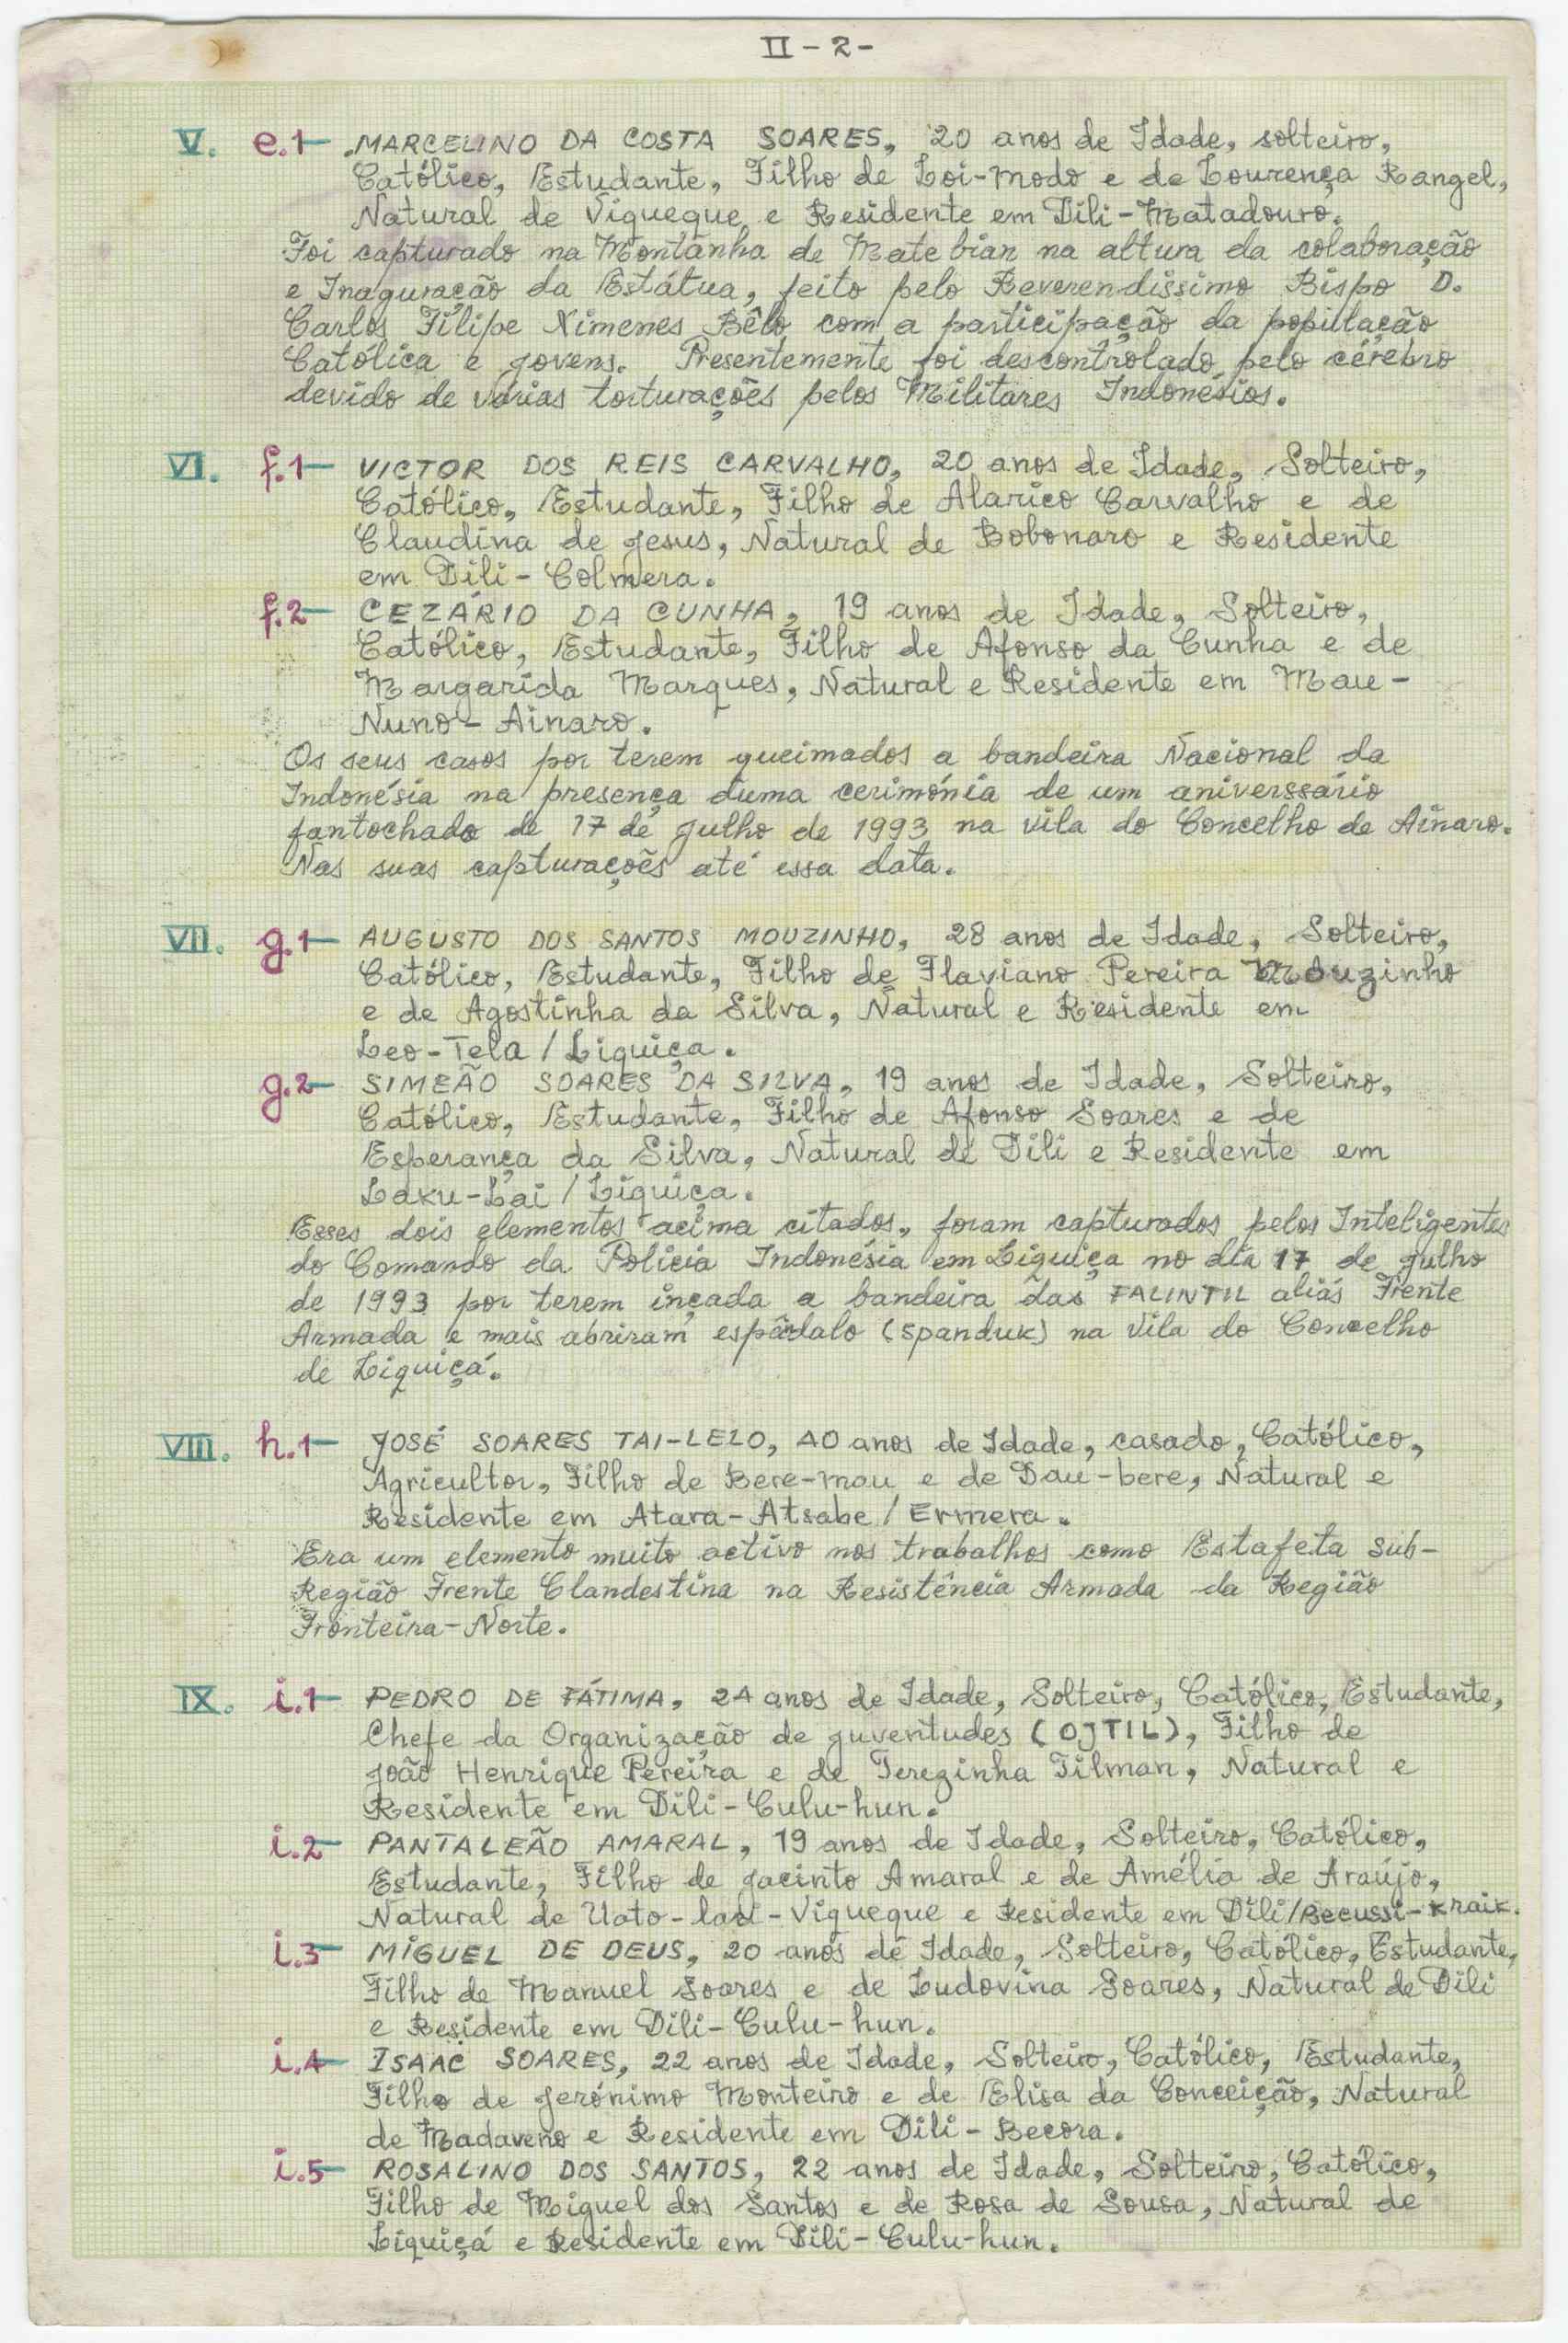 II - 2 -
V. e.1- MARCELINO DA COSTA SOARES, 20 anos de Idade, solteiro,
Católico, Estudante, Filho de Loi-modo e de Lourença Rangel,
Natural de Viqueque e Residente em Dili-Matadouro.
Foi capturado na Montanha de Mate bian na altura da colaboração
e Inaguração da Estátua, feito pelo Reverendissimo Bispo D.
Carlos Filipe Ximenes Bêlo com a participação da população
Católica e jovens. Presentemente foi descontrolado pelo cérebro
devido de várias torturações pelos Militares Indonésios.
VI. f.1- VICTOR DOS REIS CARVALHO, 20 anos de Idade, Solteiro,
Católico, Estudante, Filho de Alarico Carvalho e de
Claudina de jesus, Natural de Bobonaro e Residente
em Dili - Colmera.
f.2- CEZÁRIO DA CUNHA, 19 anos de Idade, Solteiro,
Católico, Estudante, Filho de Afonso da Cunha e de
Margarida Marques, Natural e Residente em Mau-
Nuno - Ainaro.
Os seus casos por terem queimados a bandeira Nacional da
Indonésia na presença duma cerimónia de um aniverssário
fantochado de 17 de julho de 1993 na vila do Concelho de Ainaro.
Nas suas capturações até essa data.
VII. g.1- AUGUSTO DOS SANTOS MOUZINHO, 28 anos de Idade, Solteiro,
Católico, Estudante, Filho de Flaviano Pereira Mouzinho
e de Agostinha da Silva, Natural e Residente em
Leo-Tela / Liquiça.
g.2- SIMEÃO SOARES DA SILVA, 19 anos de Idade, Solteiro,
Católico, Estudante, Filho de Afonso Soares e de
Esperança da Silva, Natural de Dili e Residente em
Laku-Lai / Liquiça.
Esses dois elementos acima citados, foram capturados pelos Inteligentes
do Comando da Policia Indonésia em Liquiça no dia 17 de julho
de 1993 por terem inçada a bandeira das FALINTIL aliás Frente
Armada e mais abriram espândalo (spanduk) na Vila do Concelho
de Liquiçá.
VIII. h.1- JOSÉ SOARES TAI-LELO, 40 anos de Idade, casado, Católico,
Agricultor, Filho de Bere-mau e de Dau-bere, Natural e
Residente em Atara-Atsabe / Ermera.
Era um elemento muito activo nos trabalhos como Estafeta sub-
Região Frente Clandestina na Resistência Armada da Região
Fronteira-Norte.
IX. i.1- PEDRO DE FÁTIMA, 24 anos de Idade, Solteiro, Católico, Estudante,
Chefe da Organização de juventudes (OJTIL), Filho de
joão Henrique Pereira e de Terezinha Tilman, Natural e
Residente em Dili-Culu-hun.
i.2- PANTALEÃO AMARAL, 19 anos de Idade, Solteiro, Católico,
Estudante, Filho de jacinto Amaral e de Amélia de Araújo,
Natural de Uato-lari-Viqueque e Residente em Dili/Becussi-Kraik.
i.3- MIGUEL DE DEUS, 20 anos de Idade, Solteiro, Católico, Estudante,
Filho de Manuel Soares e de Ludovina Soares, Natural de Dili
e Residente em Dili-Culu-hun.
i.4- ISAAC SOARES, 22 anos de Idade, Solteiro, Católico, Estudante,
Filho de jerónimo Monteiro e de Elisa da Conceição, Natural
de Madaveno e Residente em Dili - Becora.
i.5- ROSALINO DOS SANTOS, 22 anos de Idade, Solteiro, Católico,
Filho de Miguel dos Santos e de Rosa de Sousa, Natural de
Liquiçá e Residente em Dili-Culu-hun.